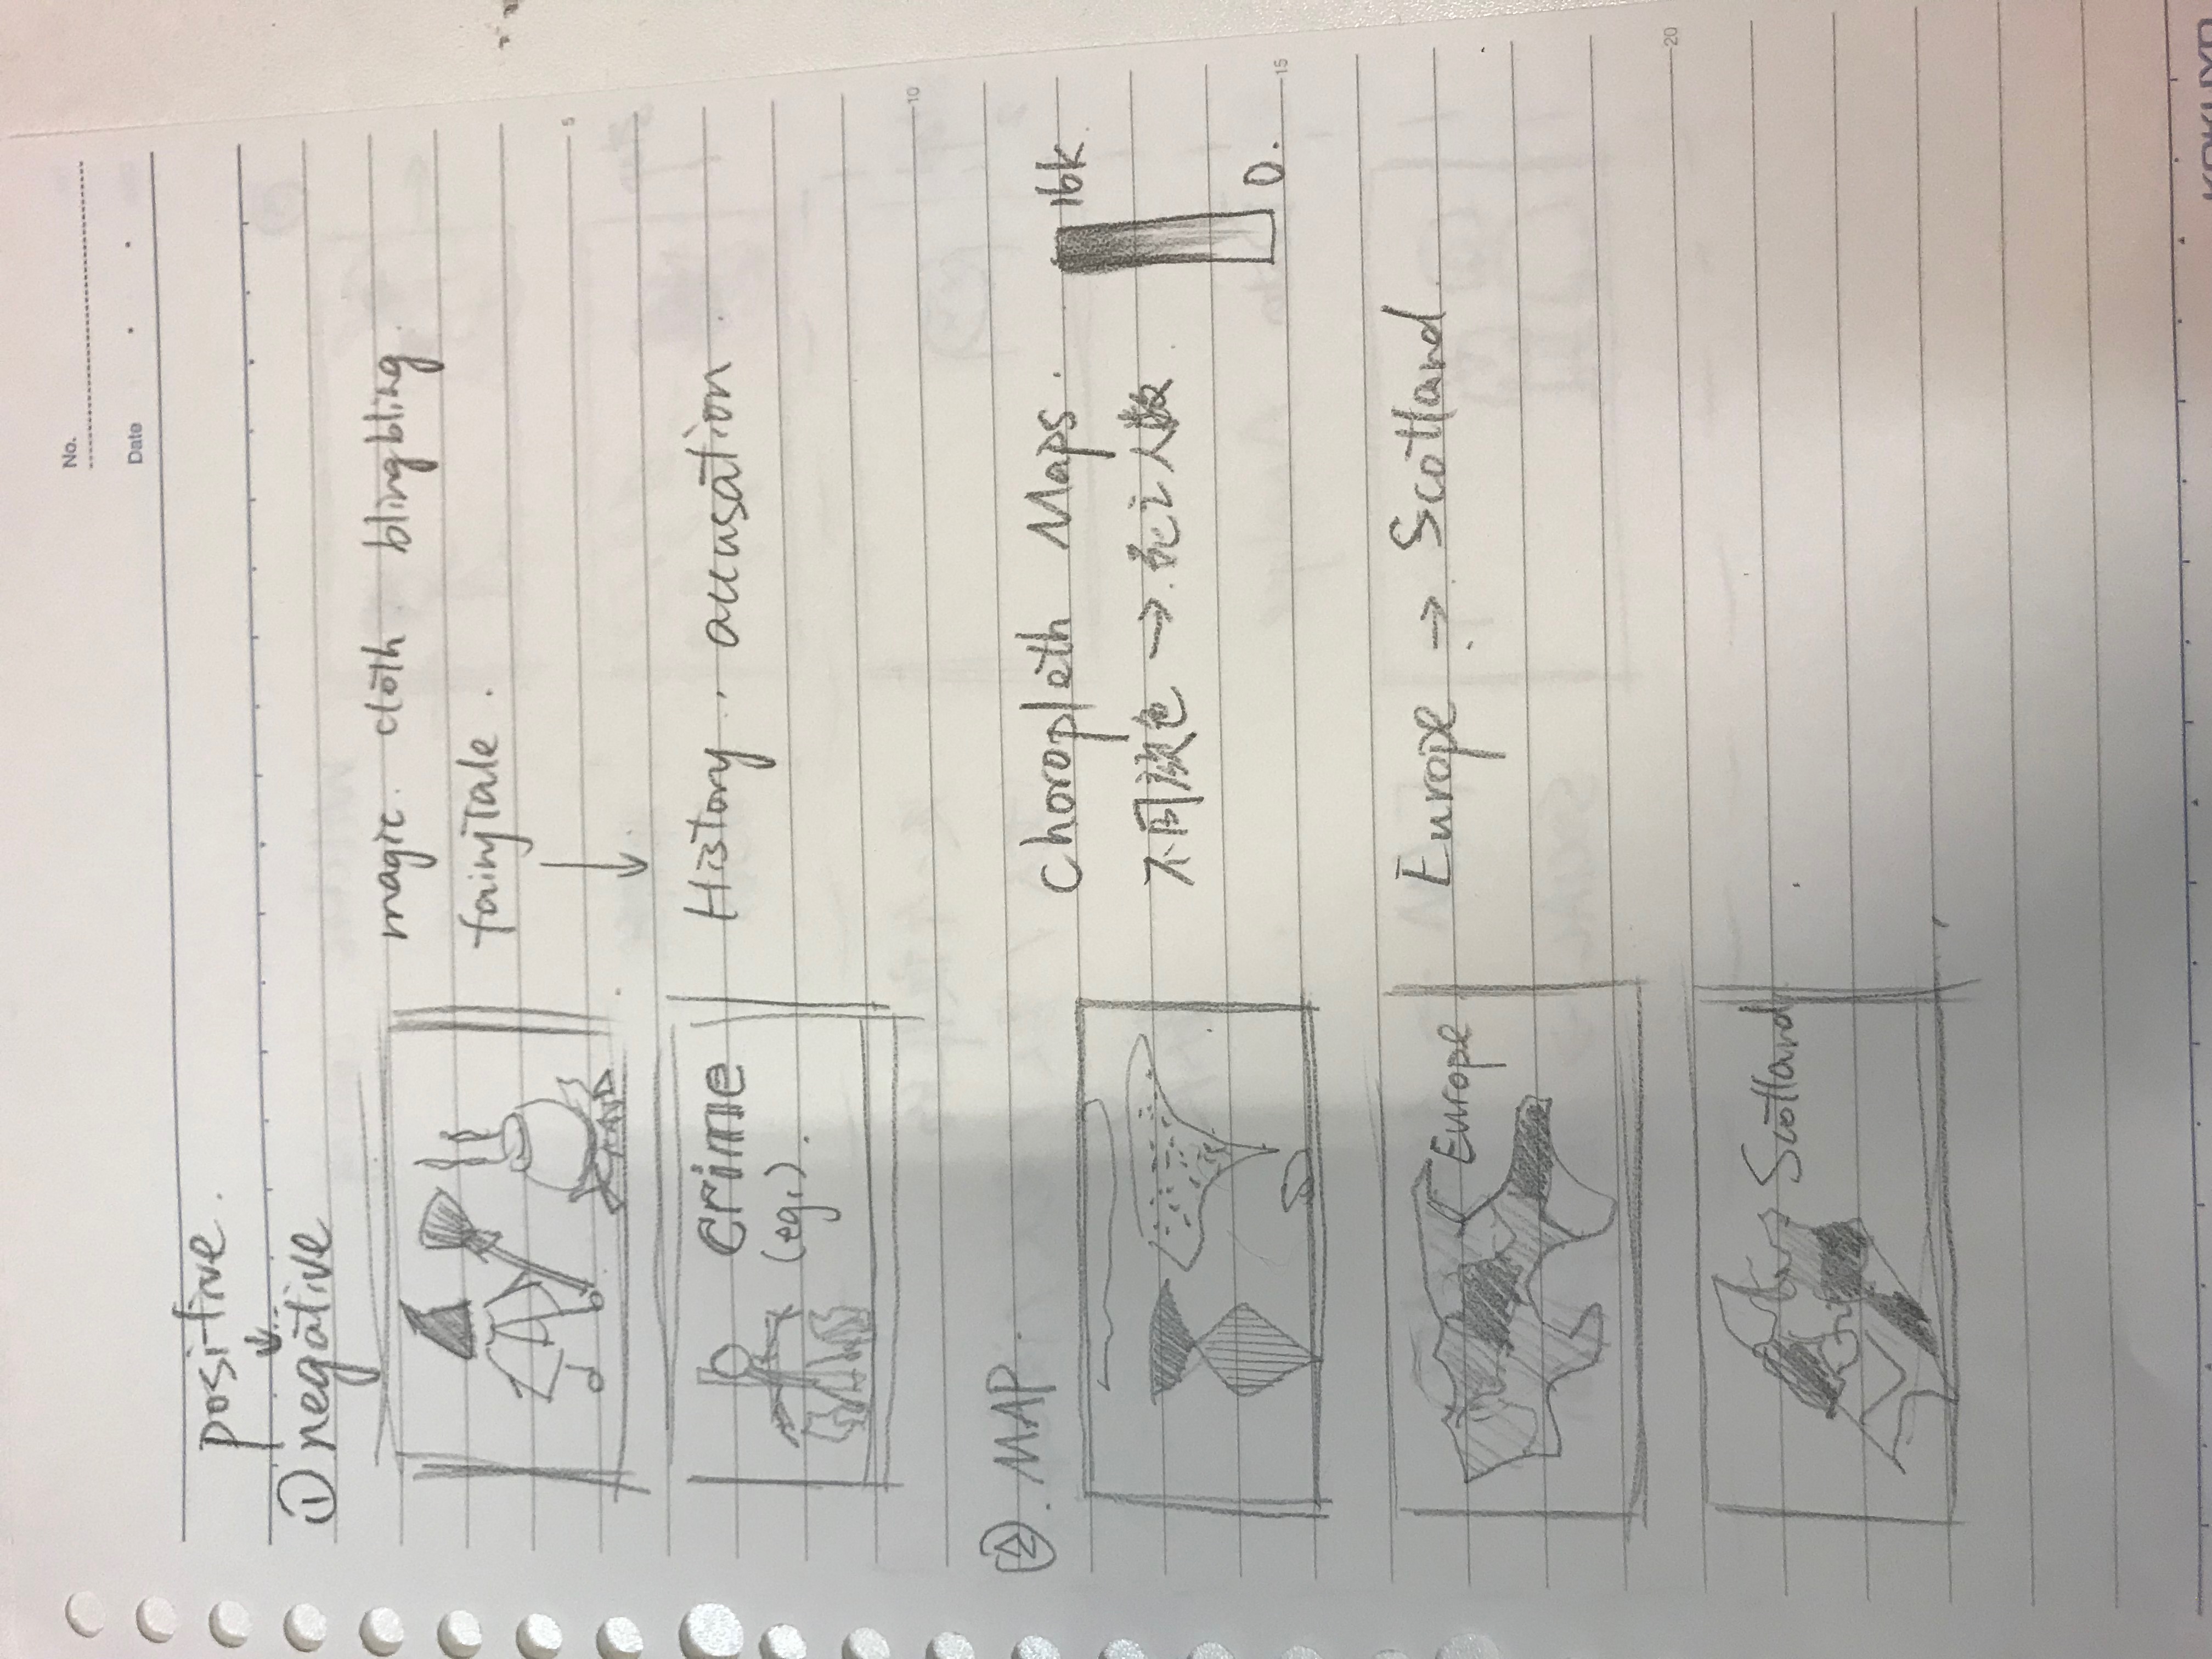 No.
Date
positive.
↓
① negative
magic. cloth. blingbling.
fairytale.
↓
crime
(eg.).
History. accusation.
② MAP.
Choropleth Maps.
16k
不同颜色 → 死亡人数
0.
5
10
15
Europe
Europe → Scotland
20
Scotland
KOKUYO